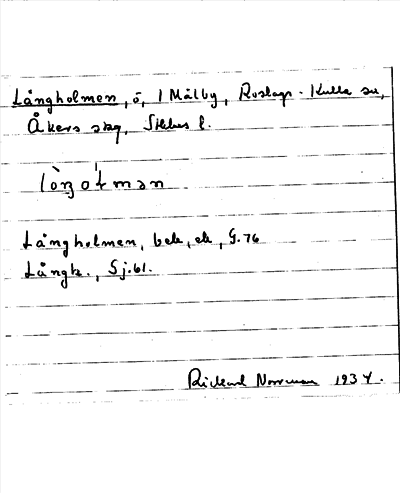 Långholmen, ö, i Målby, Roslags-Kulla sn,
Åkers skg, Sthlms l.
Långholmen, bek, ek, G.76
Långh., Sj.61.
Rickard Norrman 1934.